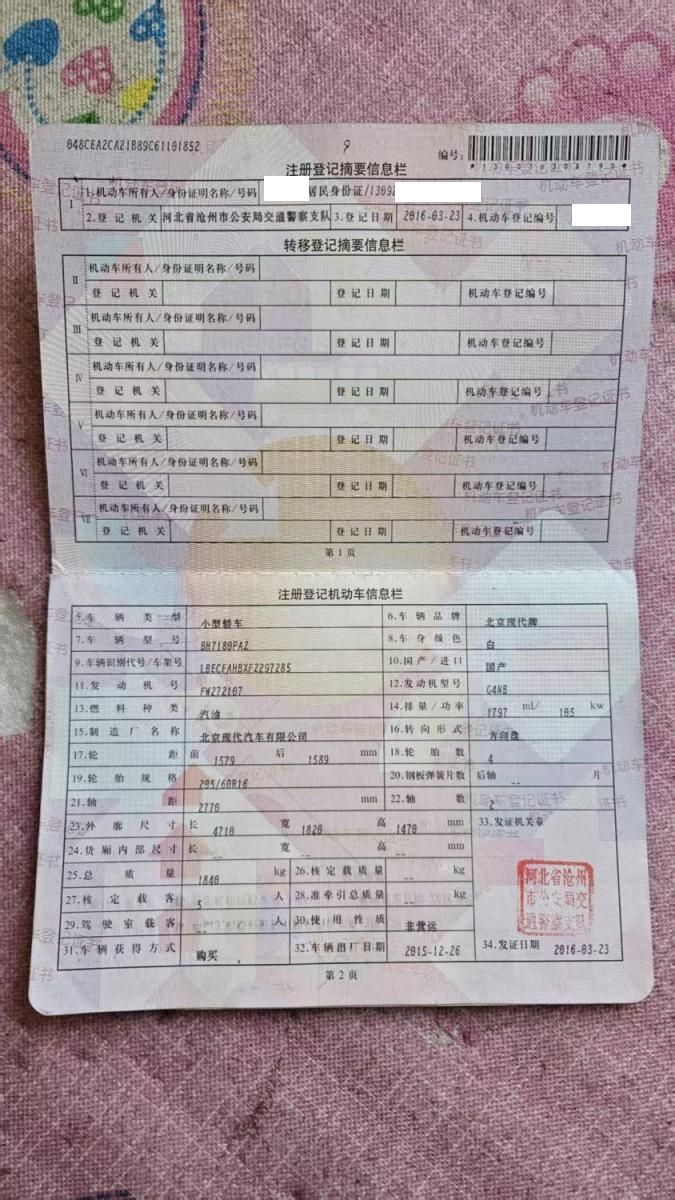 048CEA2CA21B89C61101852
编号：
*130036304790*
注册登记摘要信息栏
I 1.机动车所有人/身份证明名称/号码 居民身份证/1309
2.登记机关 河北省沧州市公安局交通警察支队 3.登记日期 2016-03-23 4.机动车登记编号
转移登记摘要信息栏
II 机动车所有人/身份证明名称/号码
登记机关 登记日期 机动车登记编号
III 机动车所有人/身份证明名称/号码
登记机关 登记日期 机动车登记编号
IV 机动车所有人/身份证明名称/号码
登记机关 登记日期 机动车登记编号
V 机动车所有人/身份证明名称/号码
登记机关 登记日期 机动车登记编号
VI 机动车所有人/身份证明名称/号码
登记机关 登记日期 机动车登记编号
VII 机动车所有人/身份证明名称/号码
登记机关 登记日期 机动车登记编号
第1页
注册登记机动车信息栏
5.车辆类型 小型轿车 6.车辆品牌 北京现代牌
7.车辆型号 BH7180PAZ 8.车身颜色 白
9.车辆识别代号/车架号 LBECFAHBXFZ297285 10.国产/进口 国产
11.发动机号 FW272107 12.发动机型号 G4NB
13.燃料种类 汽油 14.排量/功率 1797 ml/ 105 kw
15.制造厂名称 北京现代汽车有限公司 16.转向形式 方向盘
17.轮距 前 1579 后 1589 mm 18.轮胎数 4
19.轮胎规格 205/60R16 20.钢板弹簧片数 后轴 -- 片
21.轴距 2770 mm 22.轴数 2
23.外廓尺寸 长 4710 宽 1820 高 1470 mm 33.发证机关章
24.货厢内部尺寸 长 -- 宽 -- 高 -- mm
25.总质量 1840 kg 26.核定载质量 -- kg
27.核定载客 5 人 28.准牵引总质量 -- kg
29.驾驶室载客 -- 人 30.使用性质 非营运
31.车辆获得方式 购买 32.车辆出厂日期 2015-12-26 34.发证日期 2016-03-23
河北省沧州
市公安局交
通警察支队
第2页